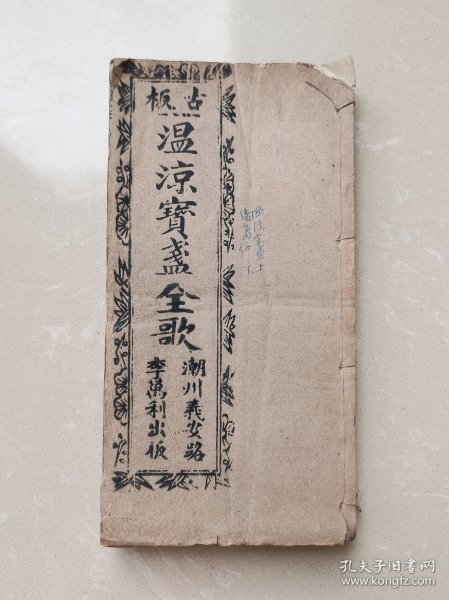 古板
温涼寶盞全歌
潮州義安路
李萬利出版
孔夫子旧书网
www.kongfz.com